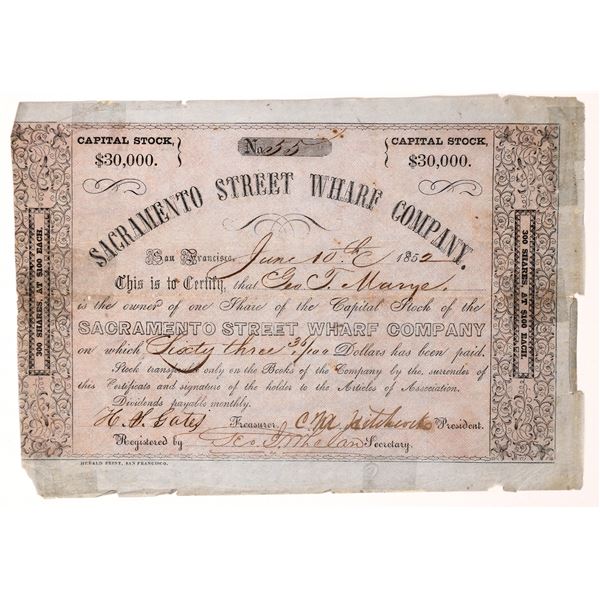 CAPITAL STOCK, $30,000.
No. 55
CAPITAL STOCK, $30,000.
SACRAMENTO STREET WHARF COMPANY.
San Francisco, June 10th 1852
This is to Certify, that Geo T. Marye.
is the owner of one Share of the Capital Stock of the
SACRAMENTO STREET WHARF COMPANY
on which Sixty three 36/100 Dollars has been paid.
Stock transferable only on the Books of the Company by the, surrender of
this Certificate and signature of the holder to the Articles of Association.
Dividends payable monthly.
H. N. Gates Treasurer. C. M. Hitchcock President.
Registered by Geo. J. Whelan Secretary.
HERALD PRINT, SAN FRANCISCO.
300 SHARES, AT $100 EACH.
300 SHARES, AT $100 EACH.